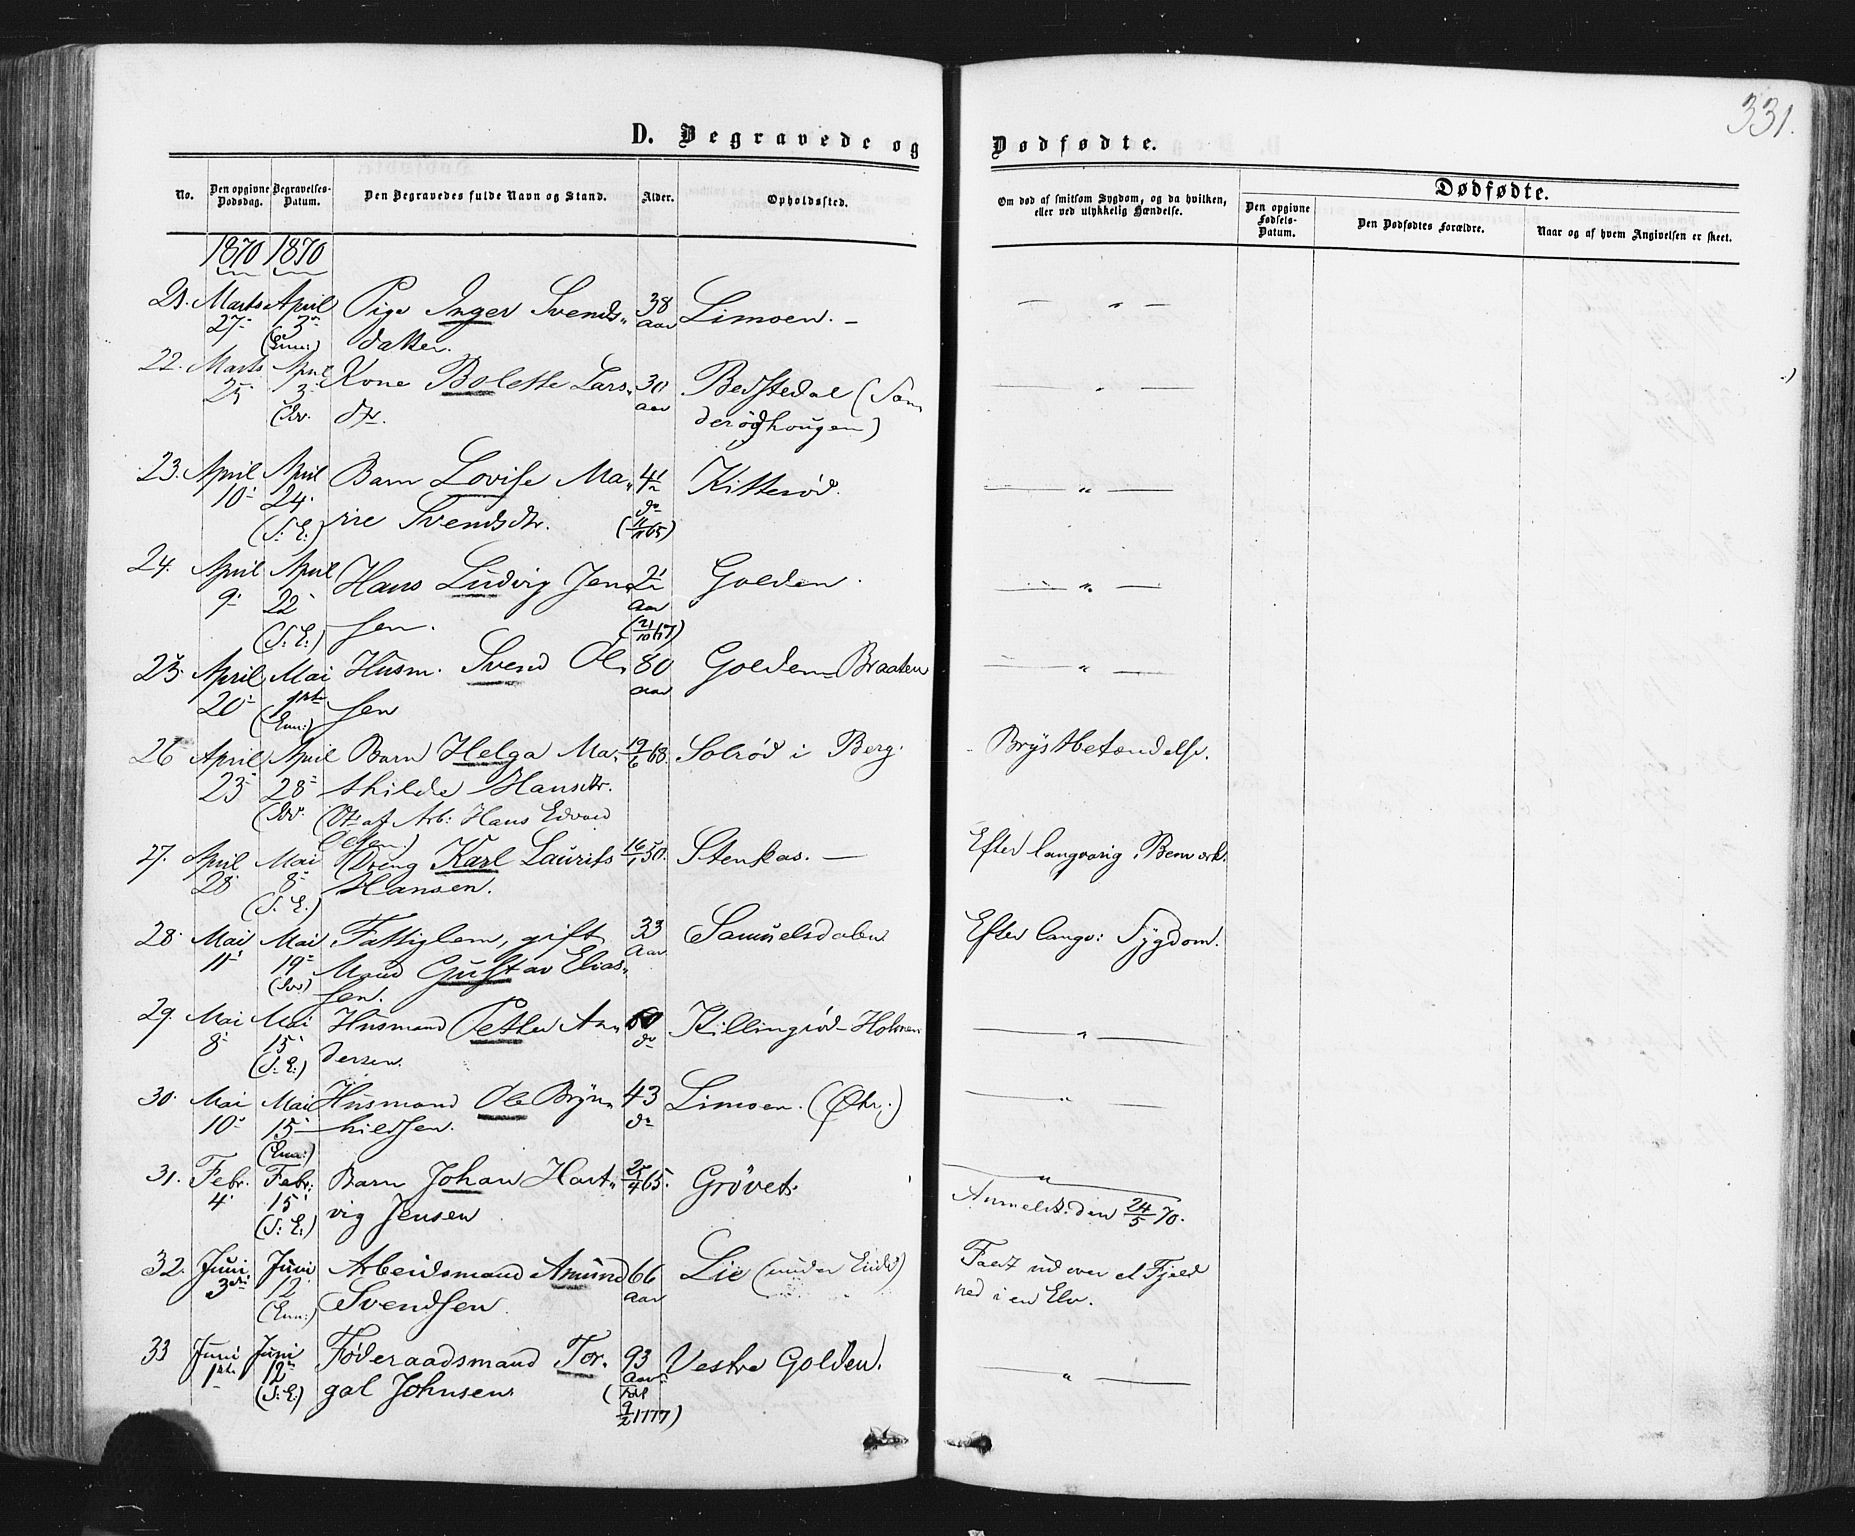 331.
D. Begravede og Dødfødte.
No. Den opgivne Dødsdag. Begravelses-Datum. Den Begravedes fulde Navn og Stand. Alder. Opholdssted. Om død af smitsom Sygdom, og da hvilken, eller ved ulykkelig Hændelse. Dødfødte.
Den opgivne Fødsels-Datum. Den Dødfødtes Forældre. Naar og af hvem Angivelsen er skeet.
1870 1870
21. Marts April Pige Inger Svends- 38 Limoen. — — " —
27 3 datter. aar
(Enn:)
22. Marts April Kone Bolette Lars- 30 Bedstedal (Søn — " —
25 3 dtr. aar derødhougen)
23. April April Barn Lovise Ma- 4½ Kitterød. — " —
10 24 rie Svendsdtr. do
(S. E.) (11/11 65)
24. April April Hans Ludvig Jen- 2½ Golden. — " —
9 22 sen. aar
(S. E.) (21/10 67)
25. April Mai Husm. Svend Ol- 80 Golden-Braaten — " —
20 1ste sen aar
(Enn:)
26 April April Barn Helga Ma- 19/6 68. Solrød i Berg. Brystbetændelse.
23 28 thilde Hansdtr.
(Dtr af Arb: Hans Edvard
Olsen.)
27. April Mai Dreng Karl Laurits 16/1 50. Stenkas. — Efter langvarig Benværk.
28 8 Hansen.
(S. E.)
28. Mai Mai Fattiglem, gift 33 Samuelsdalen Efter langv: Sygdom.
11 19 Mand Gustav Elias- Aar
sen.
29. Mai Mai Husmand Petter An- 60 Killingrød-Holmen — " —
8 15 dersen. do
(S. E.)
30. Mai Mai Husmand Ole Bryn- 43 Limoen. (Øtr.) — " —
10 15 hildsen. do
(Enn:)
31. Febr. Febr. Barn Johan Hart- 25/4 65. Grøvet. — " —
4 15 vig Jensen Anmeldt den 24/5 70.
(S. E.)
32. Juni Juni Arbeidsmand Amund 66 Lie (under Ende) Faldt ud over et Fjeld
3die 12 Svendsen aar ned i en Elv.
(Enn:)
33 Juni Juni Føderaadsmand Tor- 93 Vestre Golden. — " —
1ste 12 gal Johnsen aar
(S. E.) (9/2 1777)